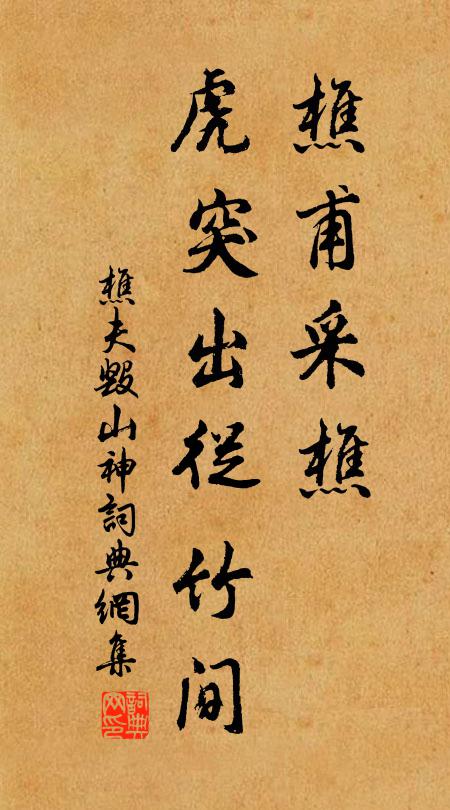 樵甫采樵
虎突出從竹间
樵夫毀山神詞典網集
詞典
网印